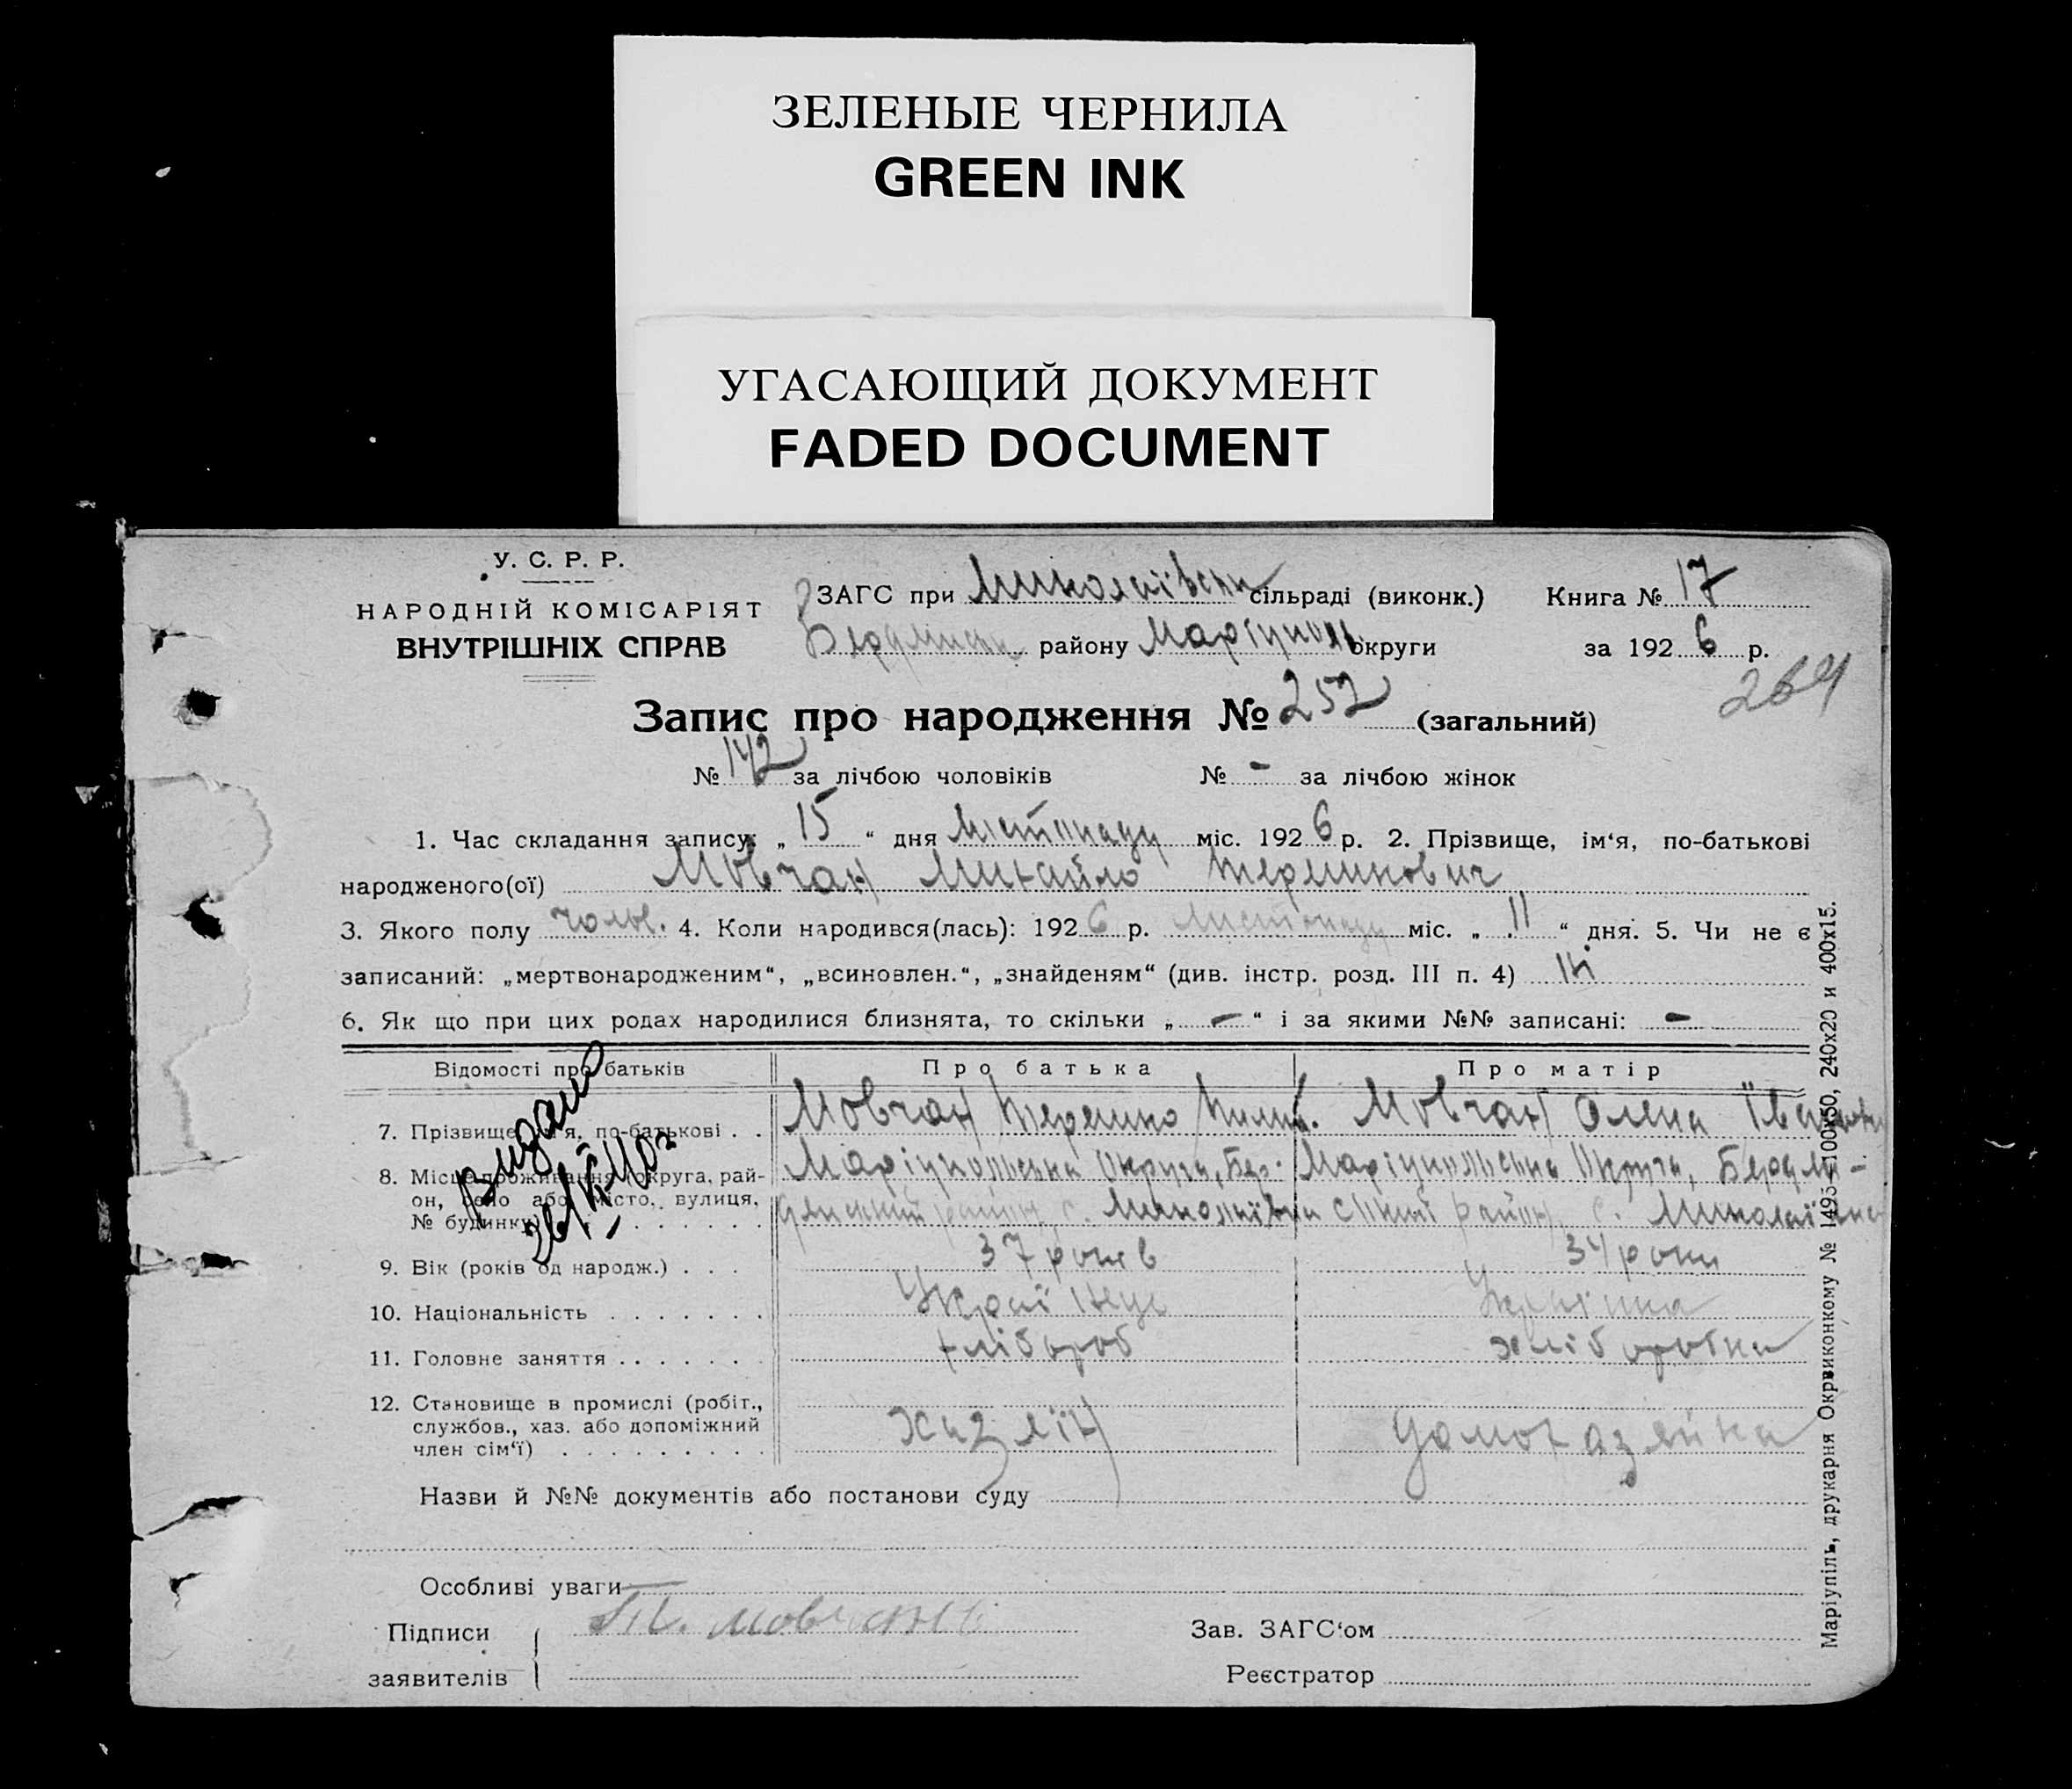 ЗЕЛЕНЫЕ ЧЕРНИЛА
GREEN INK
УГАСАЮЩИЙ ДОКУМЕНТ
FADED DOCUMENT
У. С. Р. Р.
НАРОДНІЙ КОМІСАРІЯТ
ВНУТРІШНІХ СПРАВ
ЗАГС при Миколаївськ сільраді (виконк.) Книга № 17
району Маріупол. округи за 1926 р.
264
Запис про народження № 252 (загальний)
№ 142 за лічбою чоловіків № - за лічбою жінок
1. Час складання запису: „ 15 “ дня листопаду міс. 1926 р. 2. Прізвище, ім‘я, по-батькові
народженого(ої) Мовчан Михайло Терешкович
3. Якого полу чолов. 4. Коли народився(лась): 1926 р. листопаду міс. „ 11 “ дня. 5. Чи не є
записаний: „мертвонародженим“, „всиновлен.“, „знайденям“ (див. інстр. розд. III п. 4) ні
6. Як що при цих родах народилися близнята, то скільки „ - “ і за якими №№ записані: -
Відомості про батьків Про батька Про матір
7. Прізвище, ім‘я, по-батькові . . Мовчан Терешко Мовчан Олена
8. Місце проживання (округа, рай- Маріупольська округа, Маріупольська округа,
он, село або місто, вулиця, район, с. Миколаївка район, с. Миколаївка
№ будинку)
9. Вік (років од народж.) . . . 37 років 34 роки
10. Національність . . . . . . . Українець Українка
11. Головне заняття . . . . . . . хлібороб хліборобка
12. Становище в промислі (робіт.,
службов., хаз. або допоміжний хазяїн домохазяйка
член сім‘ї) . . . . . . . . .
Видано
Назви й №№ документів або постанови суду
Особливі уваги
Підписи Зав. ЗАГС‘ом
заявителів Реєстратор
Маріупіль, друкарня Окрвиконкому № 1495—100x50, 240x20 и 400x15.